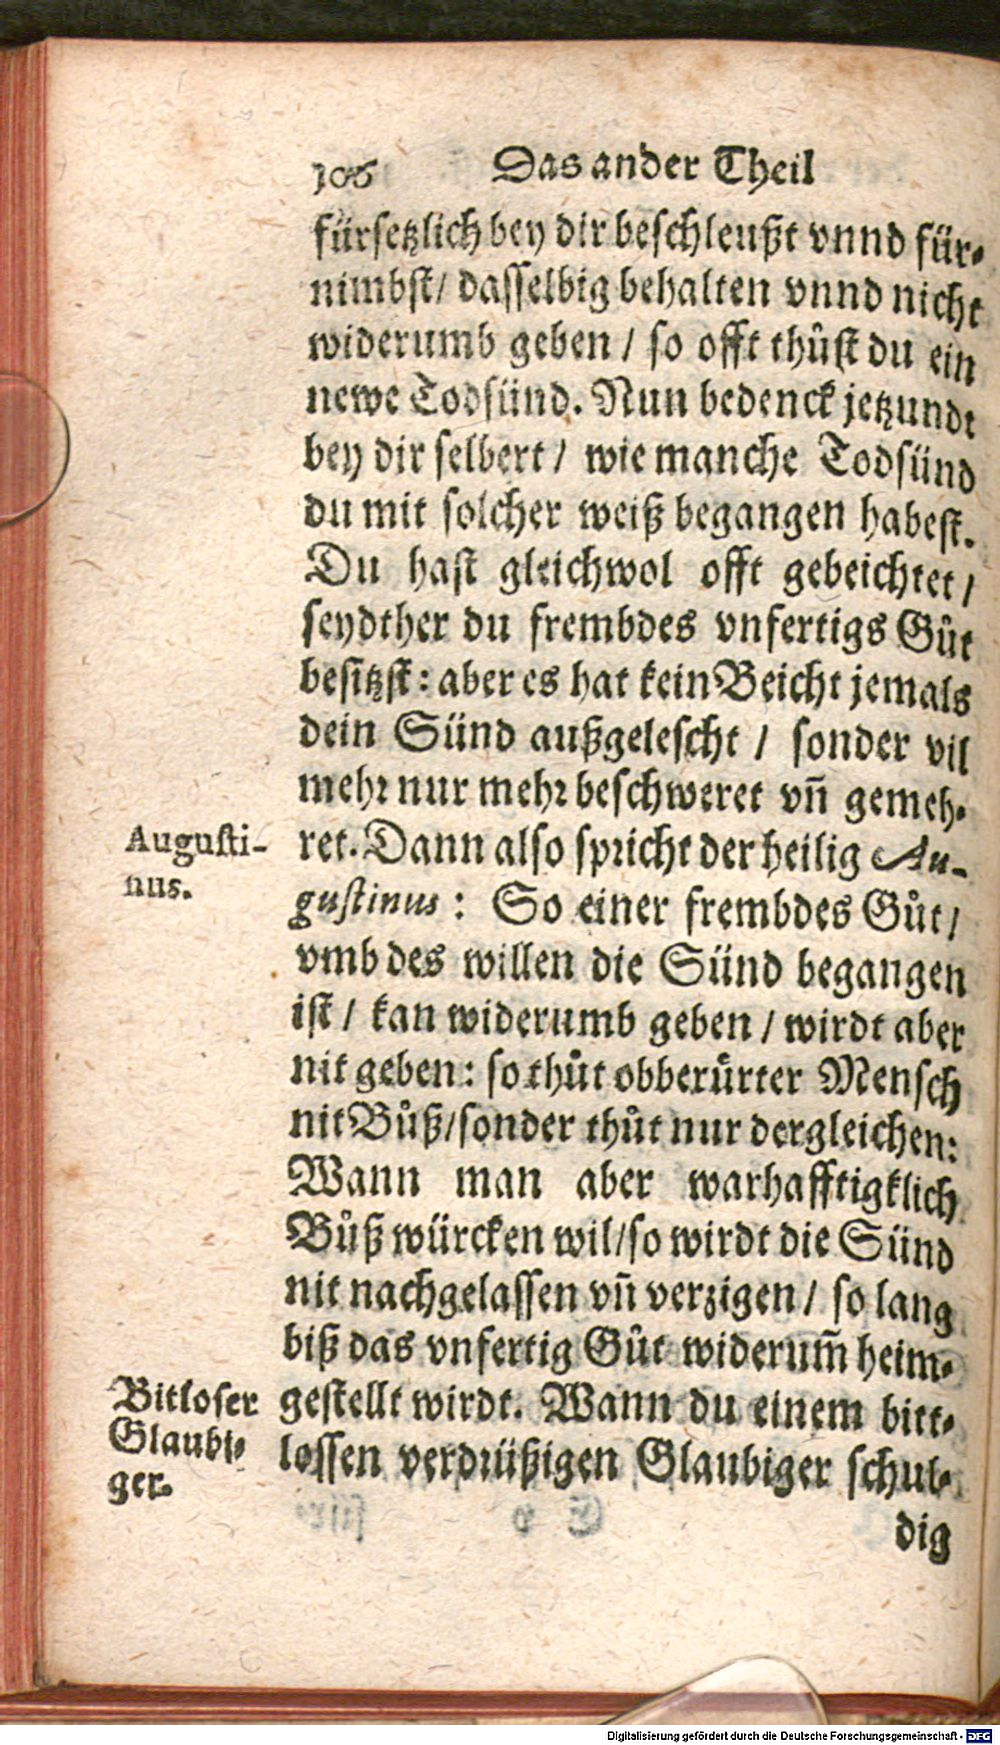 106 Das ander Theil
fürsetzlich bey dir beschleußt vnnd für-
nimbst/ dasselbig behalten vnnd nicht
widerumb geben / so offt thůst du ein
newe Todsünd. Nun bedenck jetzundt
bey dir selbert / wie manche Todsünd
du mit solcher weiß begangen habest.
Du hast gleichwol offt gebeichtet /
seydther du frembdes vnfertigs Gůt
besitzst: aber es hat kein Beicht jemals
dein Sünd außgelescht / sonder vil
mehr nur mehr beschweret vñ gemeh-
Augusti-
nus.
ret. Dann also spricht der heilig Au-
gustinus : So einer frembdes Gůt /
vmb des willen die Sünd begangen
ist / kan widerumb geben / wirdt aber
nit geben: so thůt obberůrter Mensch
nit Bůß/sonder thůt nur dergleichen:
Wann man aber warhafftigklich
Bůß würcken wil/so wirdt die Sünd
nit nachgelassen vñ verzigen / so lang
biß das vnfertig Gůt widerum̃ heim-
Bitloser
Glaubi-
ger.
gestellt wirdt. Wann du einem bitt-
lossen verdrüßigen Glaubiger schul-
dig
Digitalisierung gefördert durch die Deutsche Forschungsgemeinschaft - DFG